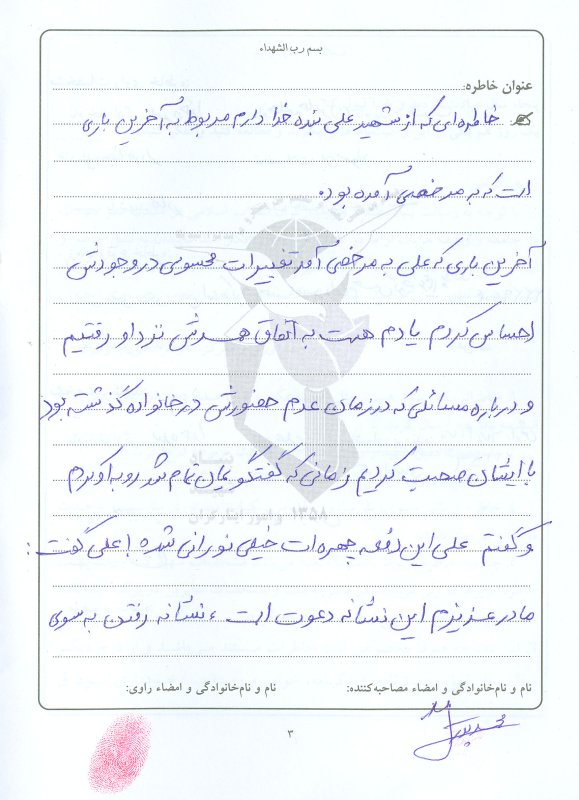 بسم رب الشهداء
عنوان خاطره:
خاطره‌ای که از شهید علی بنده خدا دارم مربوط به آخرین باری
است که به مرخصی آمده بود.
آخرین باری که علی به مرخصی آمد تغییرات محسوسی در وجودش
احساس کردم یادم هست به اتفاق همسرش نزد او رفتیم
و درباره مسائلی که در زمان عدم حضورش در خانواده گذشته بود
با ایشان صحبت کردیم زمانی که گفتگویمان تمام شد رو به او کردم
و گفتم علی این دفعه چهره‌ات خیلی نورانی شده! علی گفت:
مادر عزیزم این نشانه دعوت است، نشانه رفتن به سوی
نام و نام‌خانوادگی و امضاء مصاحبه‌کننده:
نام و نام‌خانوادگی و امضاء راوی:
۳
بنیاد
و امور ایثارگران
۱۳۵۸